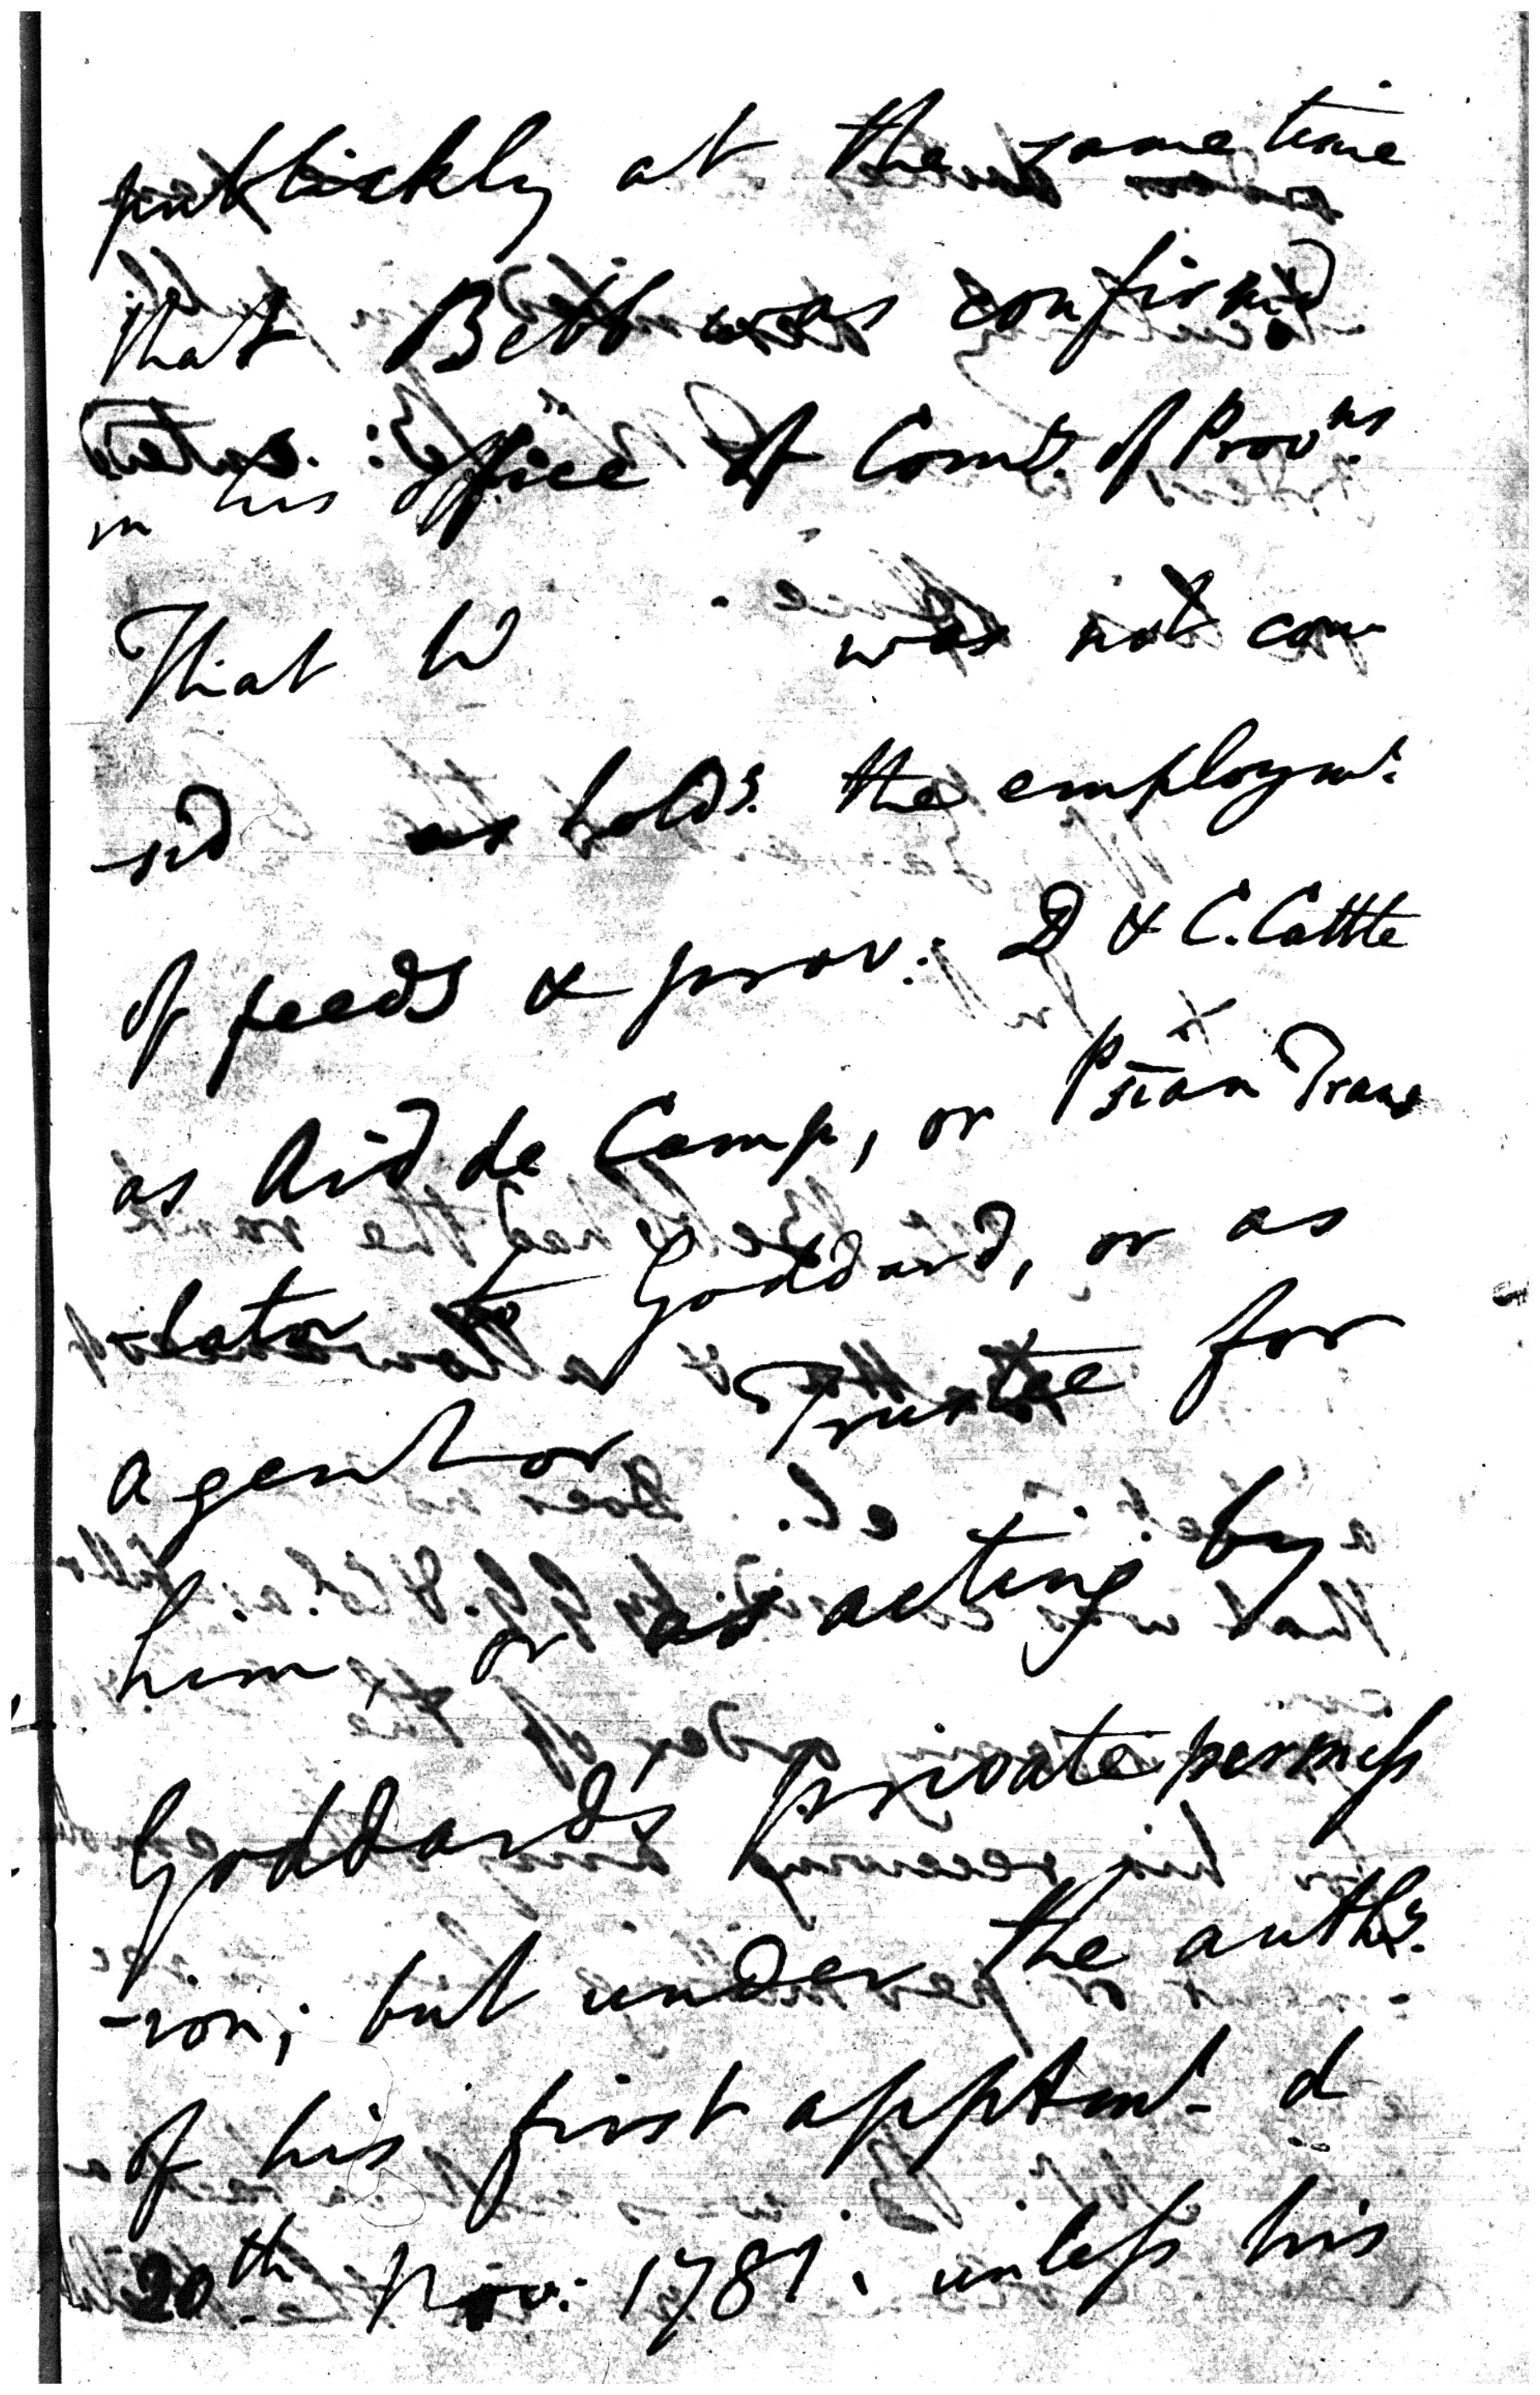 publickly at the same time
that Bebb was confirm'd
in his office of Com.y of Prov.ns
That W was not con
-sid as hold.g the employm.t
of feeds & prov.: D & C. Cattle
as Aid de Camp, or Psian Trans
-lator to Goddard, or as
agent or Trustee for
him, or as acting by
Goddard's private permiss
-ion; but under the auth.y
of his first apptm.t d
20th Nov: 1781. unless his